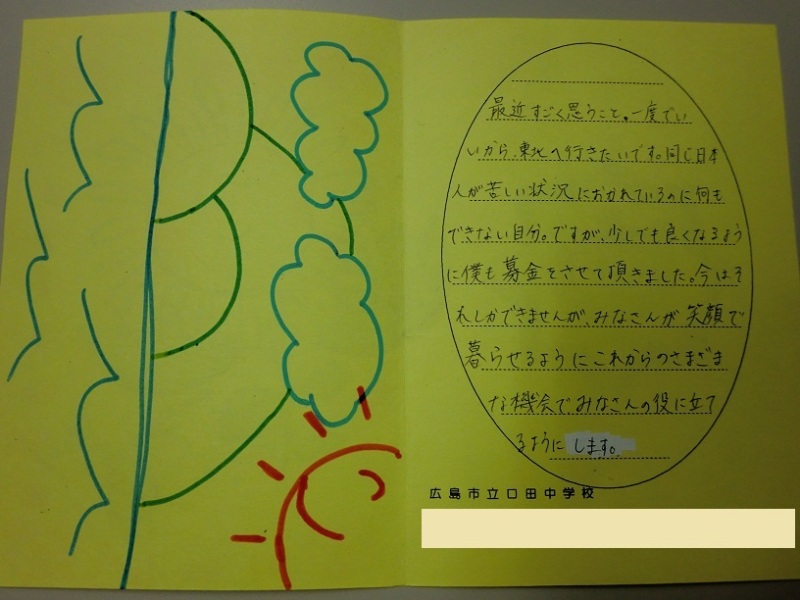 最近すごく思うこと。一度でい
いから、東北へ行きたいです。同じ日本
人が苦しい状況におかれているのに何も
できない自分。ですが、少しでも良くなるよう
に僕も募金をさせて頂きました。今はそ
れしかできませんが、みなさんが笑顔で
暮らせるようにこれからのさまざま
な機会でみなさんの役に立て
るようにします。
広島市立口田中学校